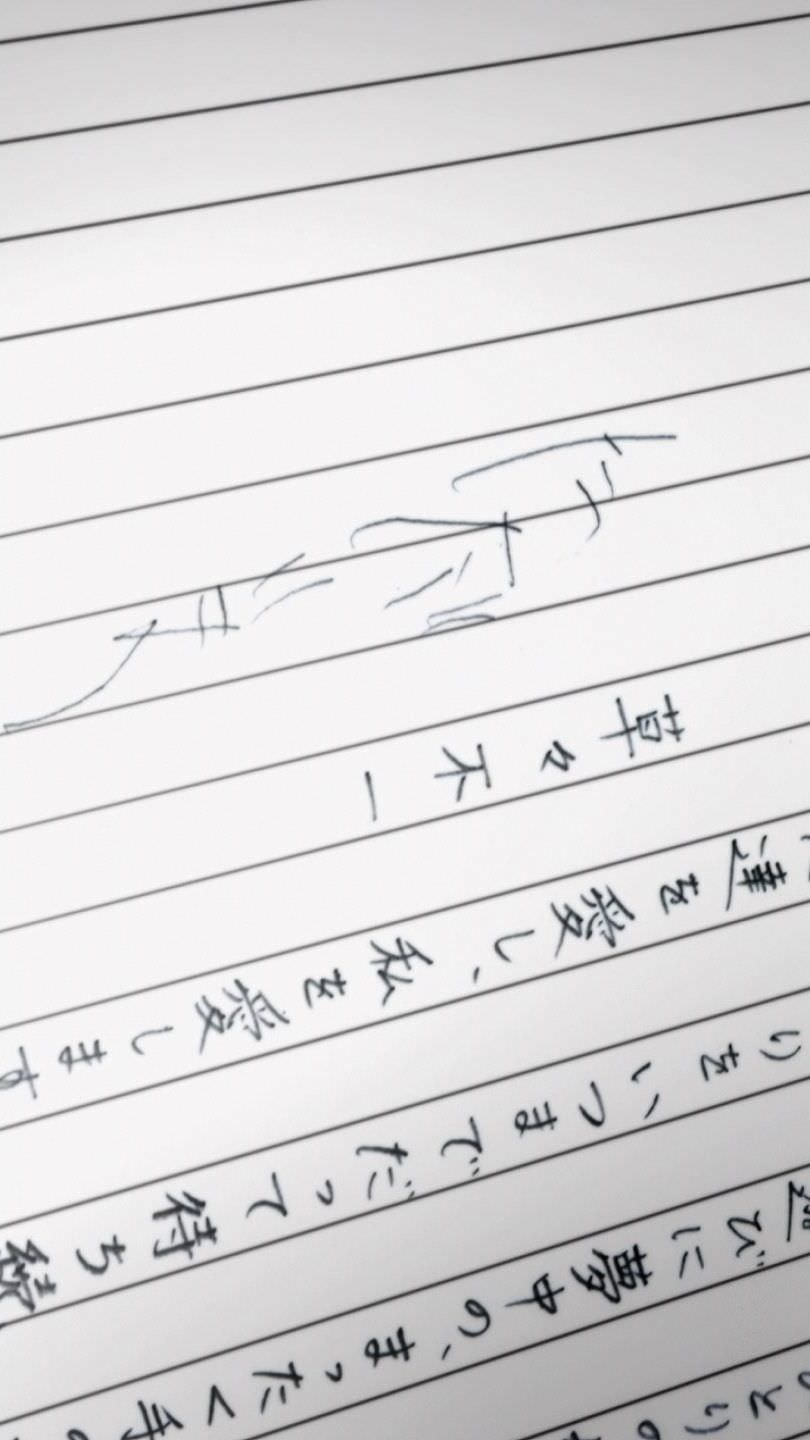 とりの
遊びに夢中の、まったく手の
りをいつまでだって待ち続
達を愛し、私を愛します
草々不一